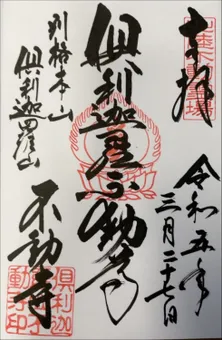 奉拝
令和五年
三月二十七日
倶利迦羅不動尊
別格本山
倶利迦羅山
不動寺
倶利迦